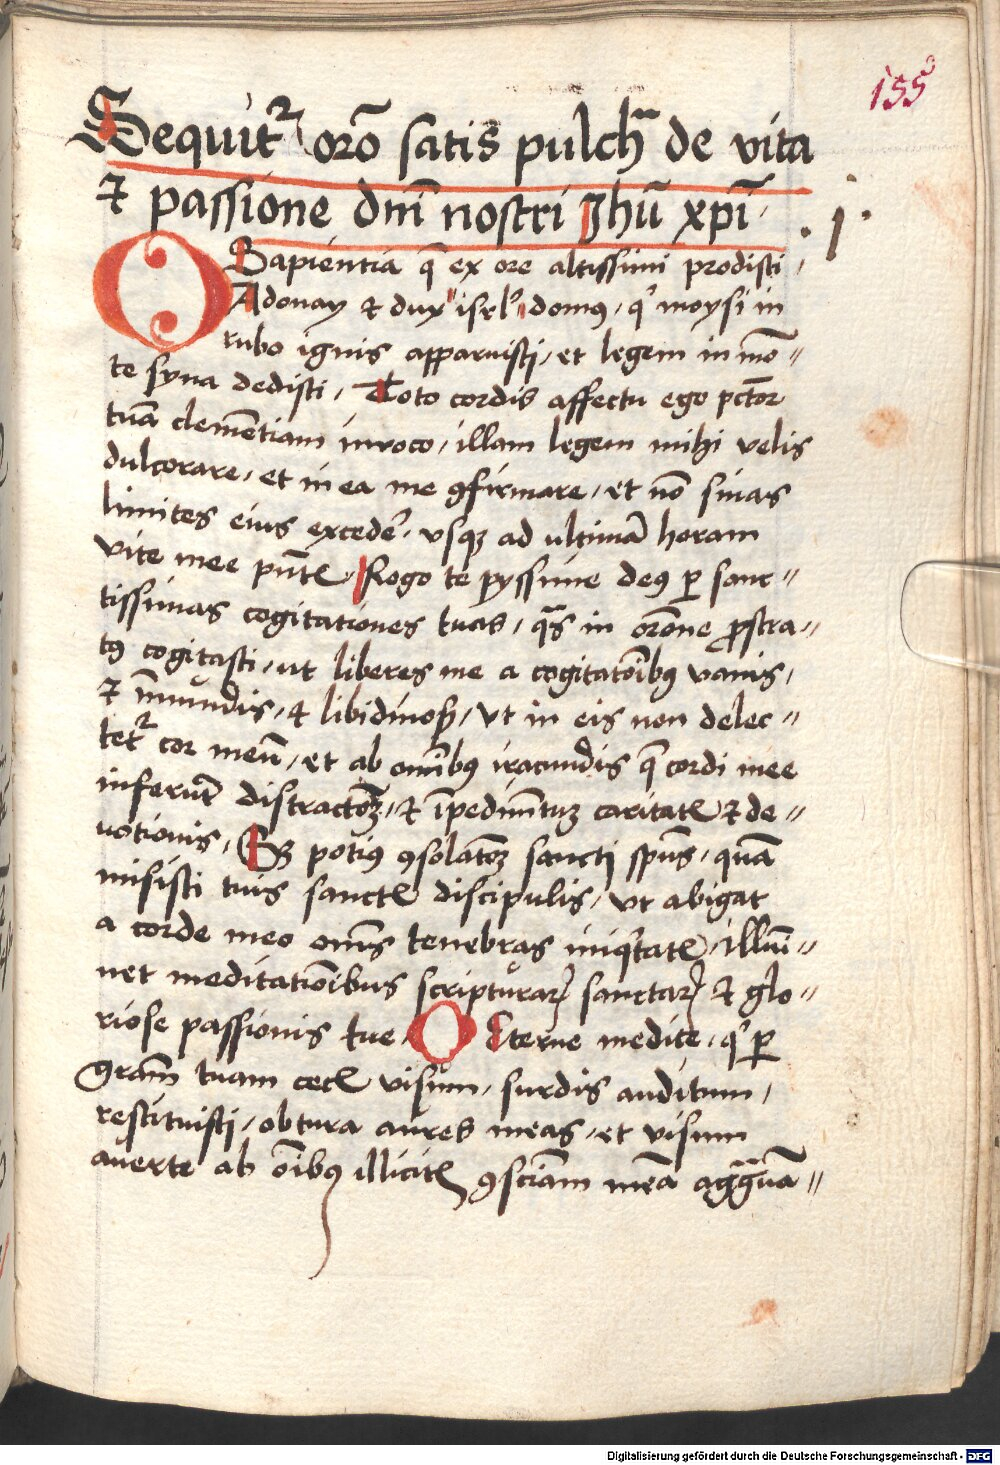 155
Sequit᷑ oro᷑ satis pulch᷑ de vita
⁊ passione dn̄i nostri Jhū xp̄i
.1.
O Sapientia q̄ ex ore altissimi prodisti,
Adonay ⁊ dux isrl' domꝯ, qⁱ moysi in
rubo ignis apparuisti, et legem in mō〃
te syna dedisti, Toto cordis affectu ego pctōr
tuā clemētiam invoco, illam legem mihi velis
dulcorare, et in ea me ꝯfirmare, et nō sinas
limites eius exceder̛, vsqꝫ ad vltimā horam
vite mee pn̄tꝭ, Rogo te pyssime deꝯ ꝑ sanc〃
tissimas cogitationes tuas, qᵃs in orōne ꝓstra〃
tꝯ cogitasti, ut liberes me a cogitatōibꝯ vanis,
⁊ īmundis, ⁊ libidinosꝭ, vt in eis non delec〃
tet᷑ cor meū, et ab om̄ibꝯ iracundis q̄ cordi meo
inferūt distractōeꝫ, ⁊ īpedimētuꝫ caritatꝭ ⁊ de〃
uotionis, Sꝫ potiꝯ ꝯsolatōeꝫ sancti spūs, quā
misisti tuis sanctꝭ discipulis, vt abigat
a corde meo om̄s tenebras iniqⁱtatꝭ, illūi〃
net meditatiōibus scripturaꝝ sanctaꝝ ⁊ glo〃
riose passionis tue, O Eterne medice, qⁱ ꝑ
gram̄ tuam cecꝭ visum, surdis auditum,
restituisti, obtura aures meas, et visum
auerte ab ōibꝯ illicitꝭ ꝯsciam̄ meā aggᵃuā〃
Digitalisierung gefördert durch die Deutsche Forschungsgemeinschaft - DFG